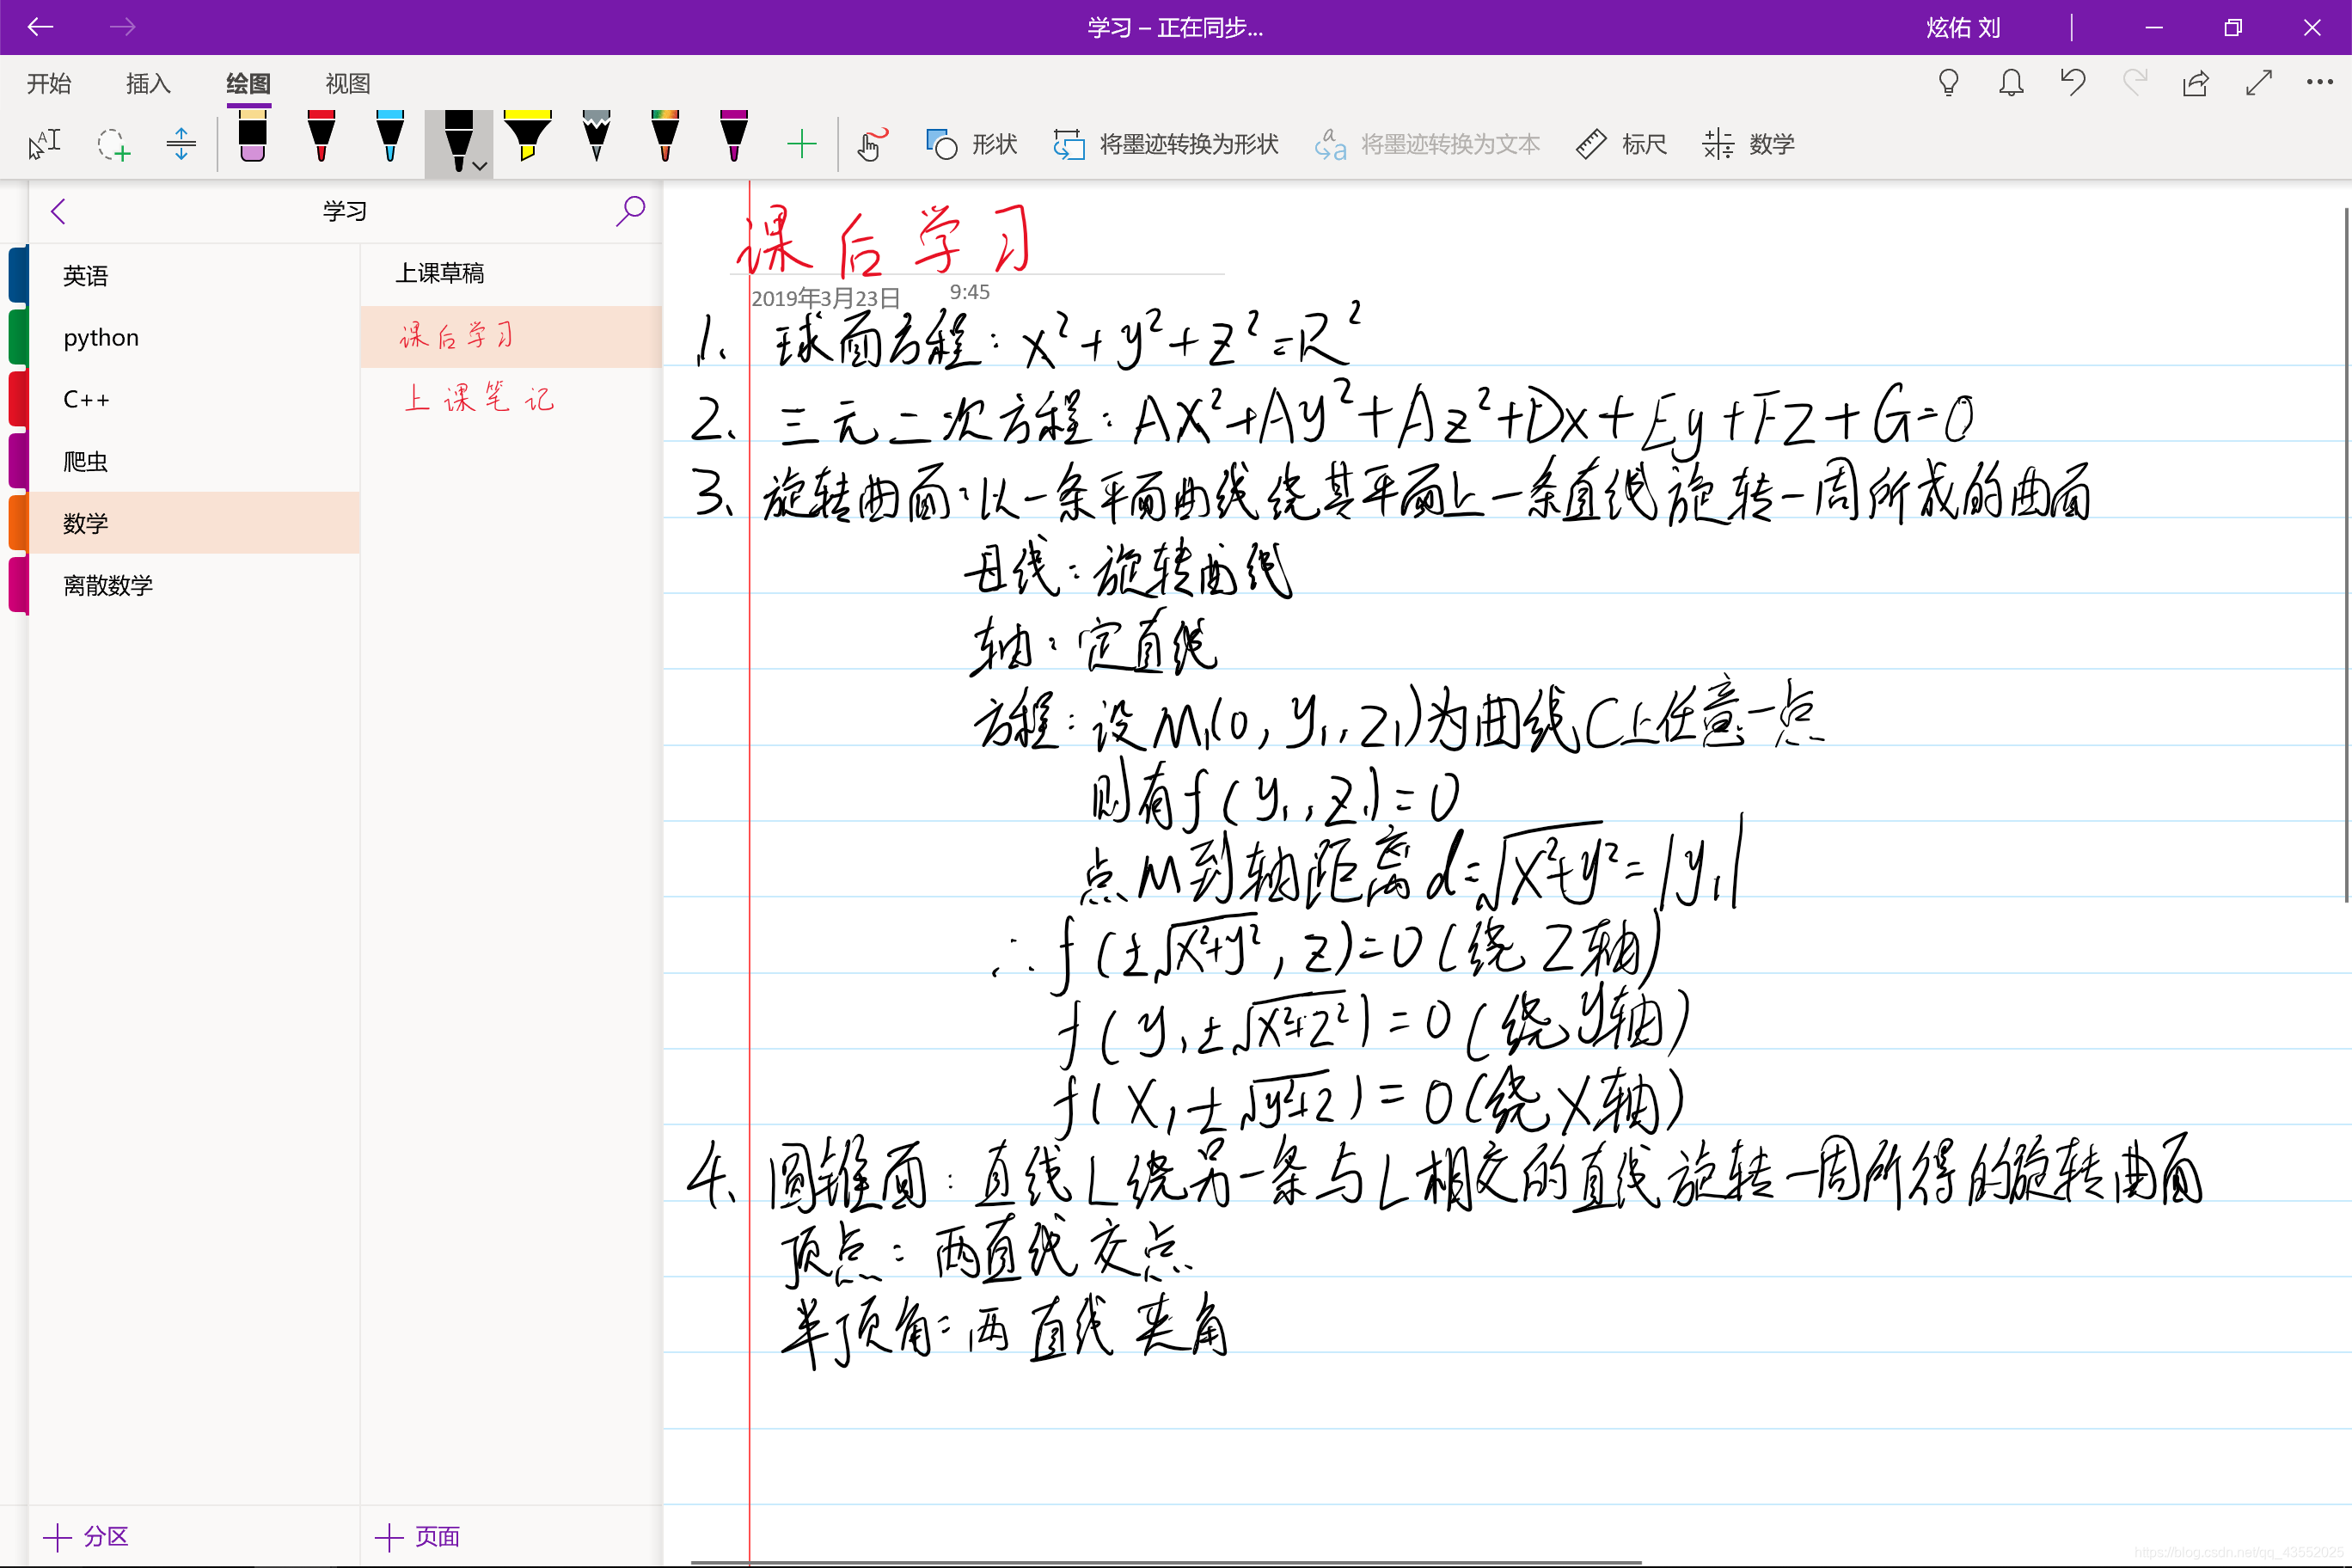 学习 – 正在同步...
炫佑 刘
开始 插入 绘图 视图
形状 将墨迹转换为形状 将墨迹转换为文本 标尺 数学
学习
英语
python
C++
爬虫
数学
离散数学
上课草稿
课后学习
上课笔记
分区
页面
课后学习
2019年3月23日 9:45
1、球面方程：x²+y²+z²=R²
2、三元二次方程：Ax²+Ay²+Az²+Dx+Ey+Fz+G=0
3、旋转曲面：以一条平面曲线绕其平面上一条直线旋转一周所成的曲面
母线：旋转曲线
轴：定直线
方程：设M₁(0, y₁, z₁)为曲线C上任意一点
则有f(y₁, z₁)=0
点M到轴距离d=√(x²+y²)=|y₁|
∴ f(±√(x²+y²), z)=0(绕z轴)
f(y, ±√(x²+z²))=0(绕y轴)
f(x, ±√(y²+z))=0(绕x轴)
4、圆锥面：直线L绕另一条与L相交的直线旋转一周所得的旋转曲面
顶点：两直线交点
半顶角：两直线夹角
https://blog.csdn.net/qq_43552025